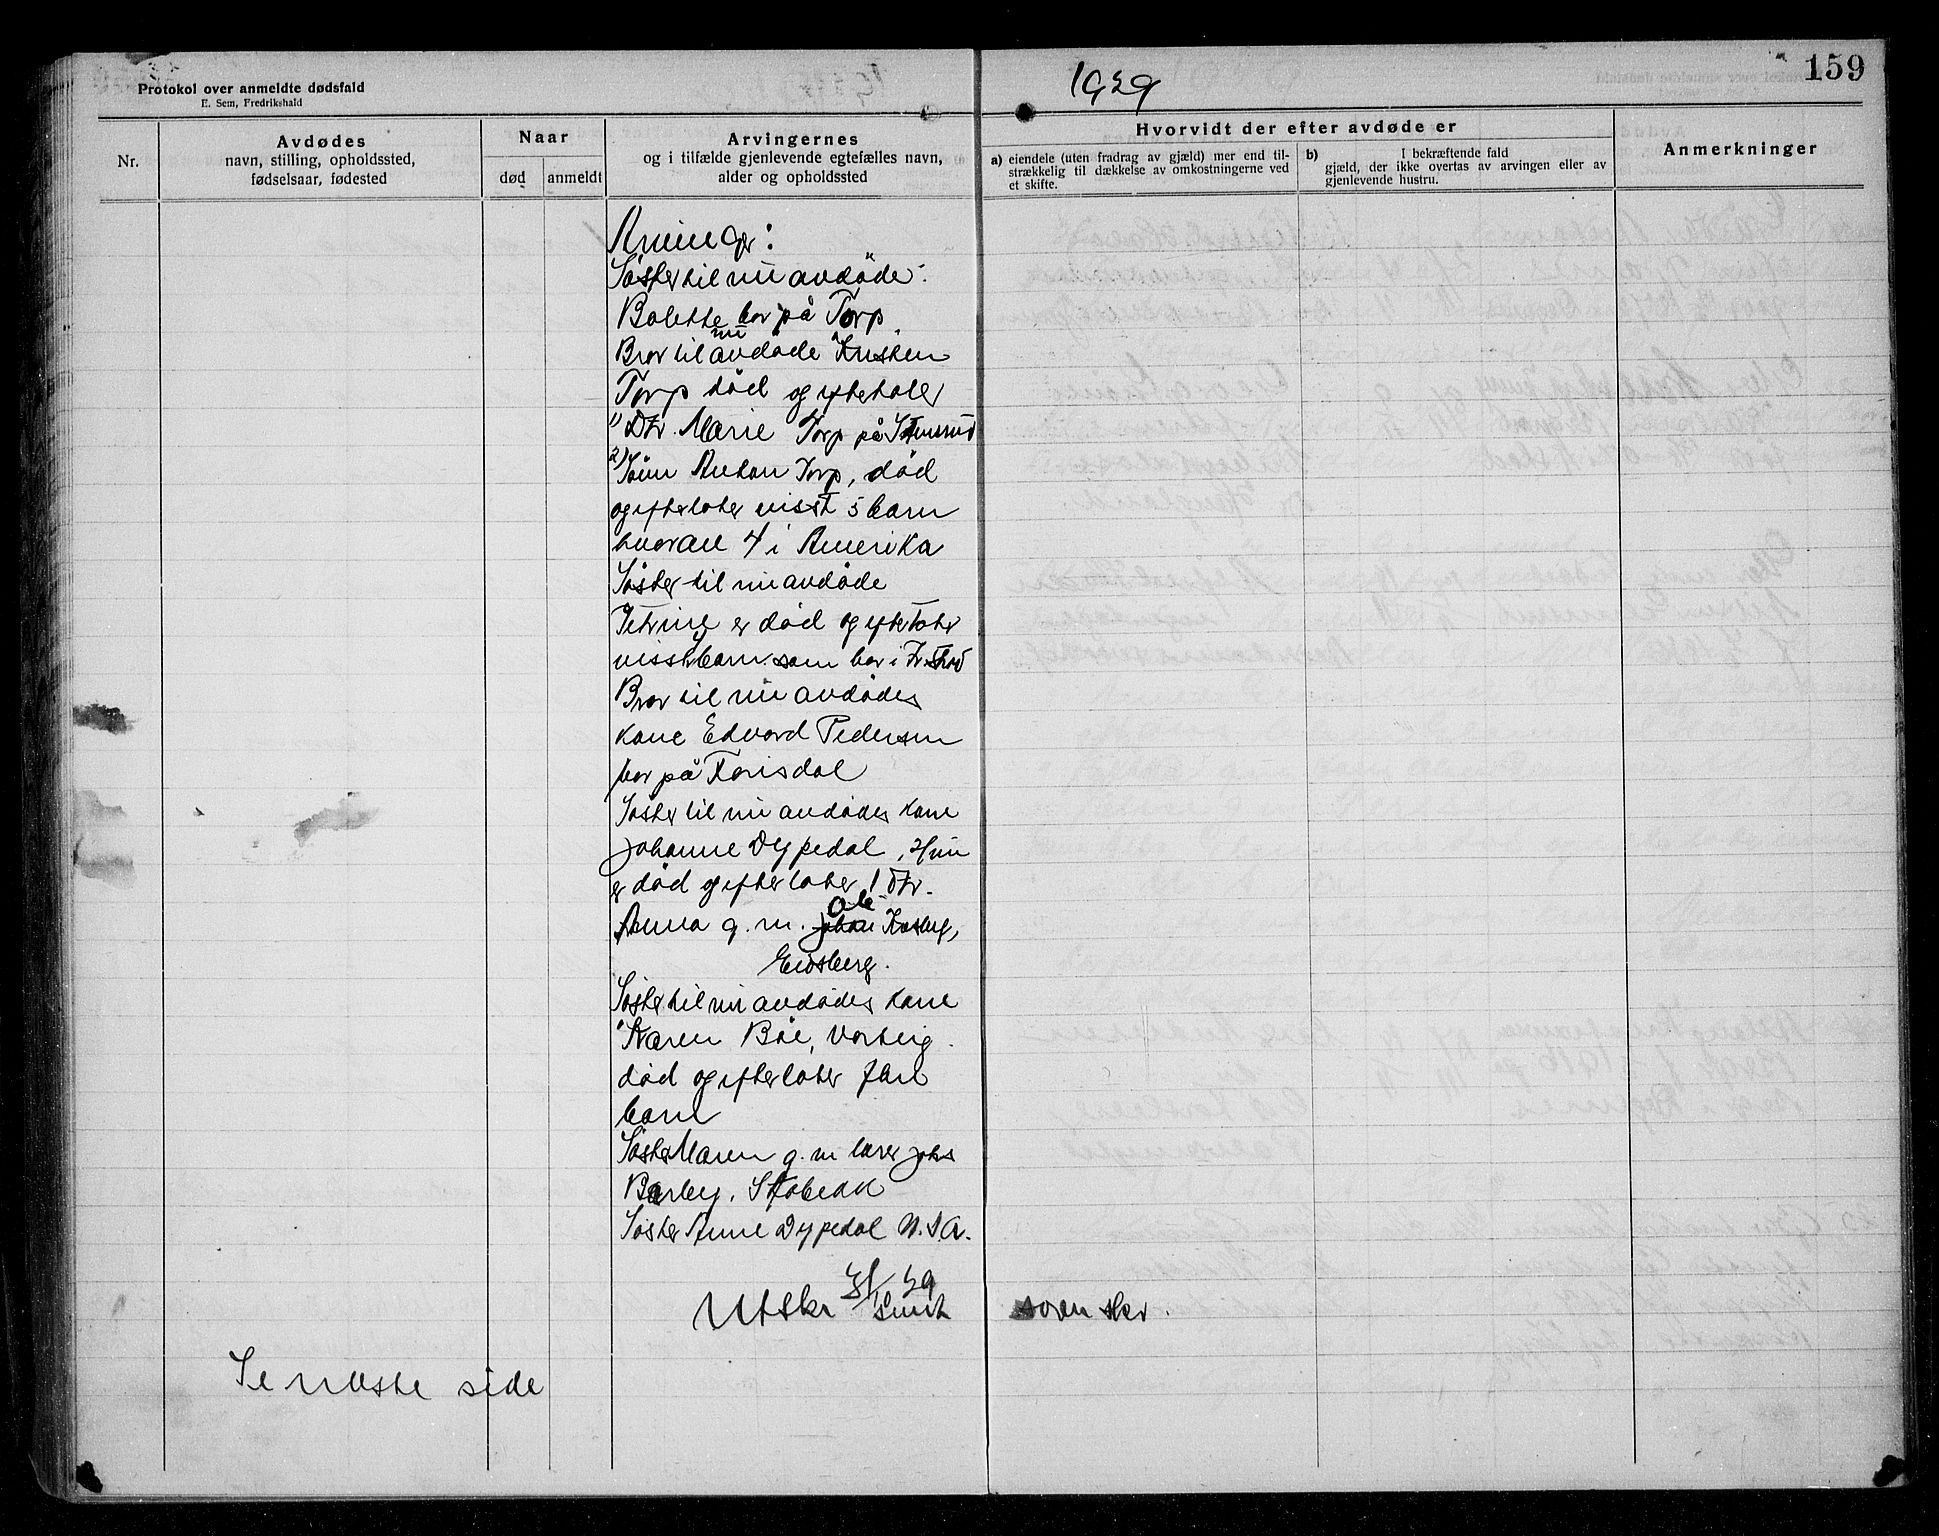 159
1929
Protokol over anmeldte dødsfald
E. Sem, Fredrikshald
Nr.
Avdødes
navn, stilling, opholdssted,
fødselsaar, fødested
Naar
død
anmeldt
Arvingernes
og i tilfælde gjenlevende egtefælles navn,
alder og opholdssted
Hvorvidt der efter avdøde er
a) eiendele (uten fradrag av gjæld) mer end til-
strækkelig til dækkelse av omkostningerne ved
et skifte.
b) I bekræftende fald
gjæld, der ikke overtas av arvingen eller av
gjenlevende hustru.
Anmerkninger
Arvinger:
Søster til nu avdøde:
Bolette bor på Torp
Bror til nu avdøde Kristen
Torp død og efterlater
1) Dtr. Marie Torp på Stensrud
2) Sønn Anton Torp, død
og efterlater visst 5 barn
hvorav 4 i Amerika
Søster til nu avdøde
Petrine er død og efterlater
visst barn som bor i Fr.stad
Bror til nu avdødes
kone Edvard Pedersen
bor på Torisdal
Søster til nu avdødes kone
Johanne Dypedal, Hun
er død og efterlater 1 dtr.
Anna g. m. Johan Ole
Eidsberg.
Søster til nu avdødes kone
Karen Bøe, Varteig
død og efterlater flere
barn
Søster Maren g. m lærer Johs
Barby, Stabekk
Søster Anne Dypedal U.S.A.
Utskr
soren skr.
Se næste side